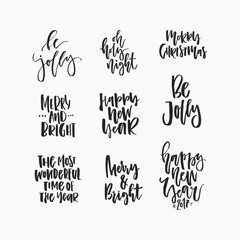 be
jolly
oh
holy
night
MERRY
CHRISTMAS
MERRY
AND
BRIGHT
Happy
new
year
Be
Jolly
THE MOST
WONDERFUL
TIME OF
THE YEAR
Merry
&
Bright
happy
new
year
2017